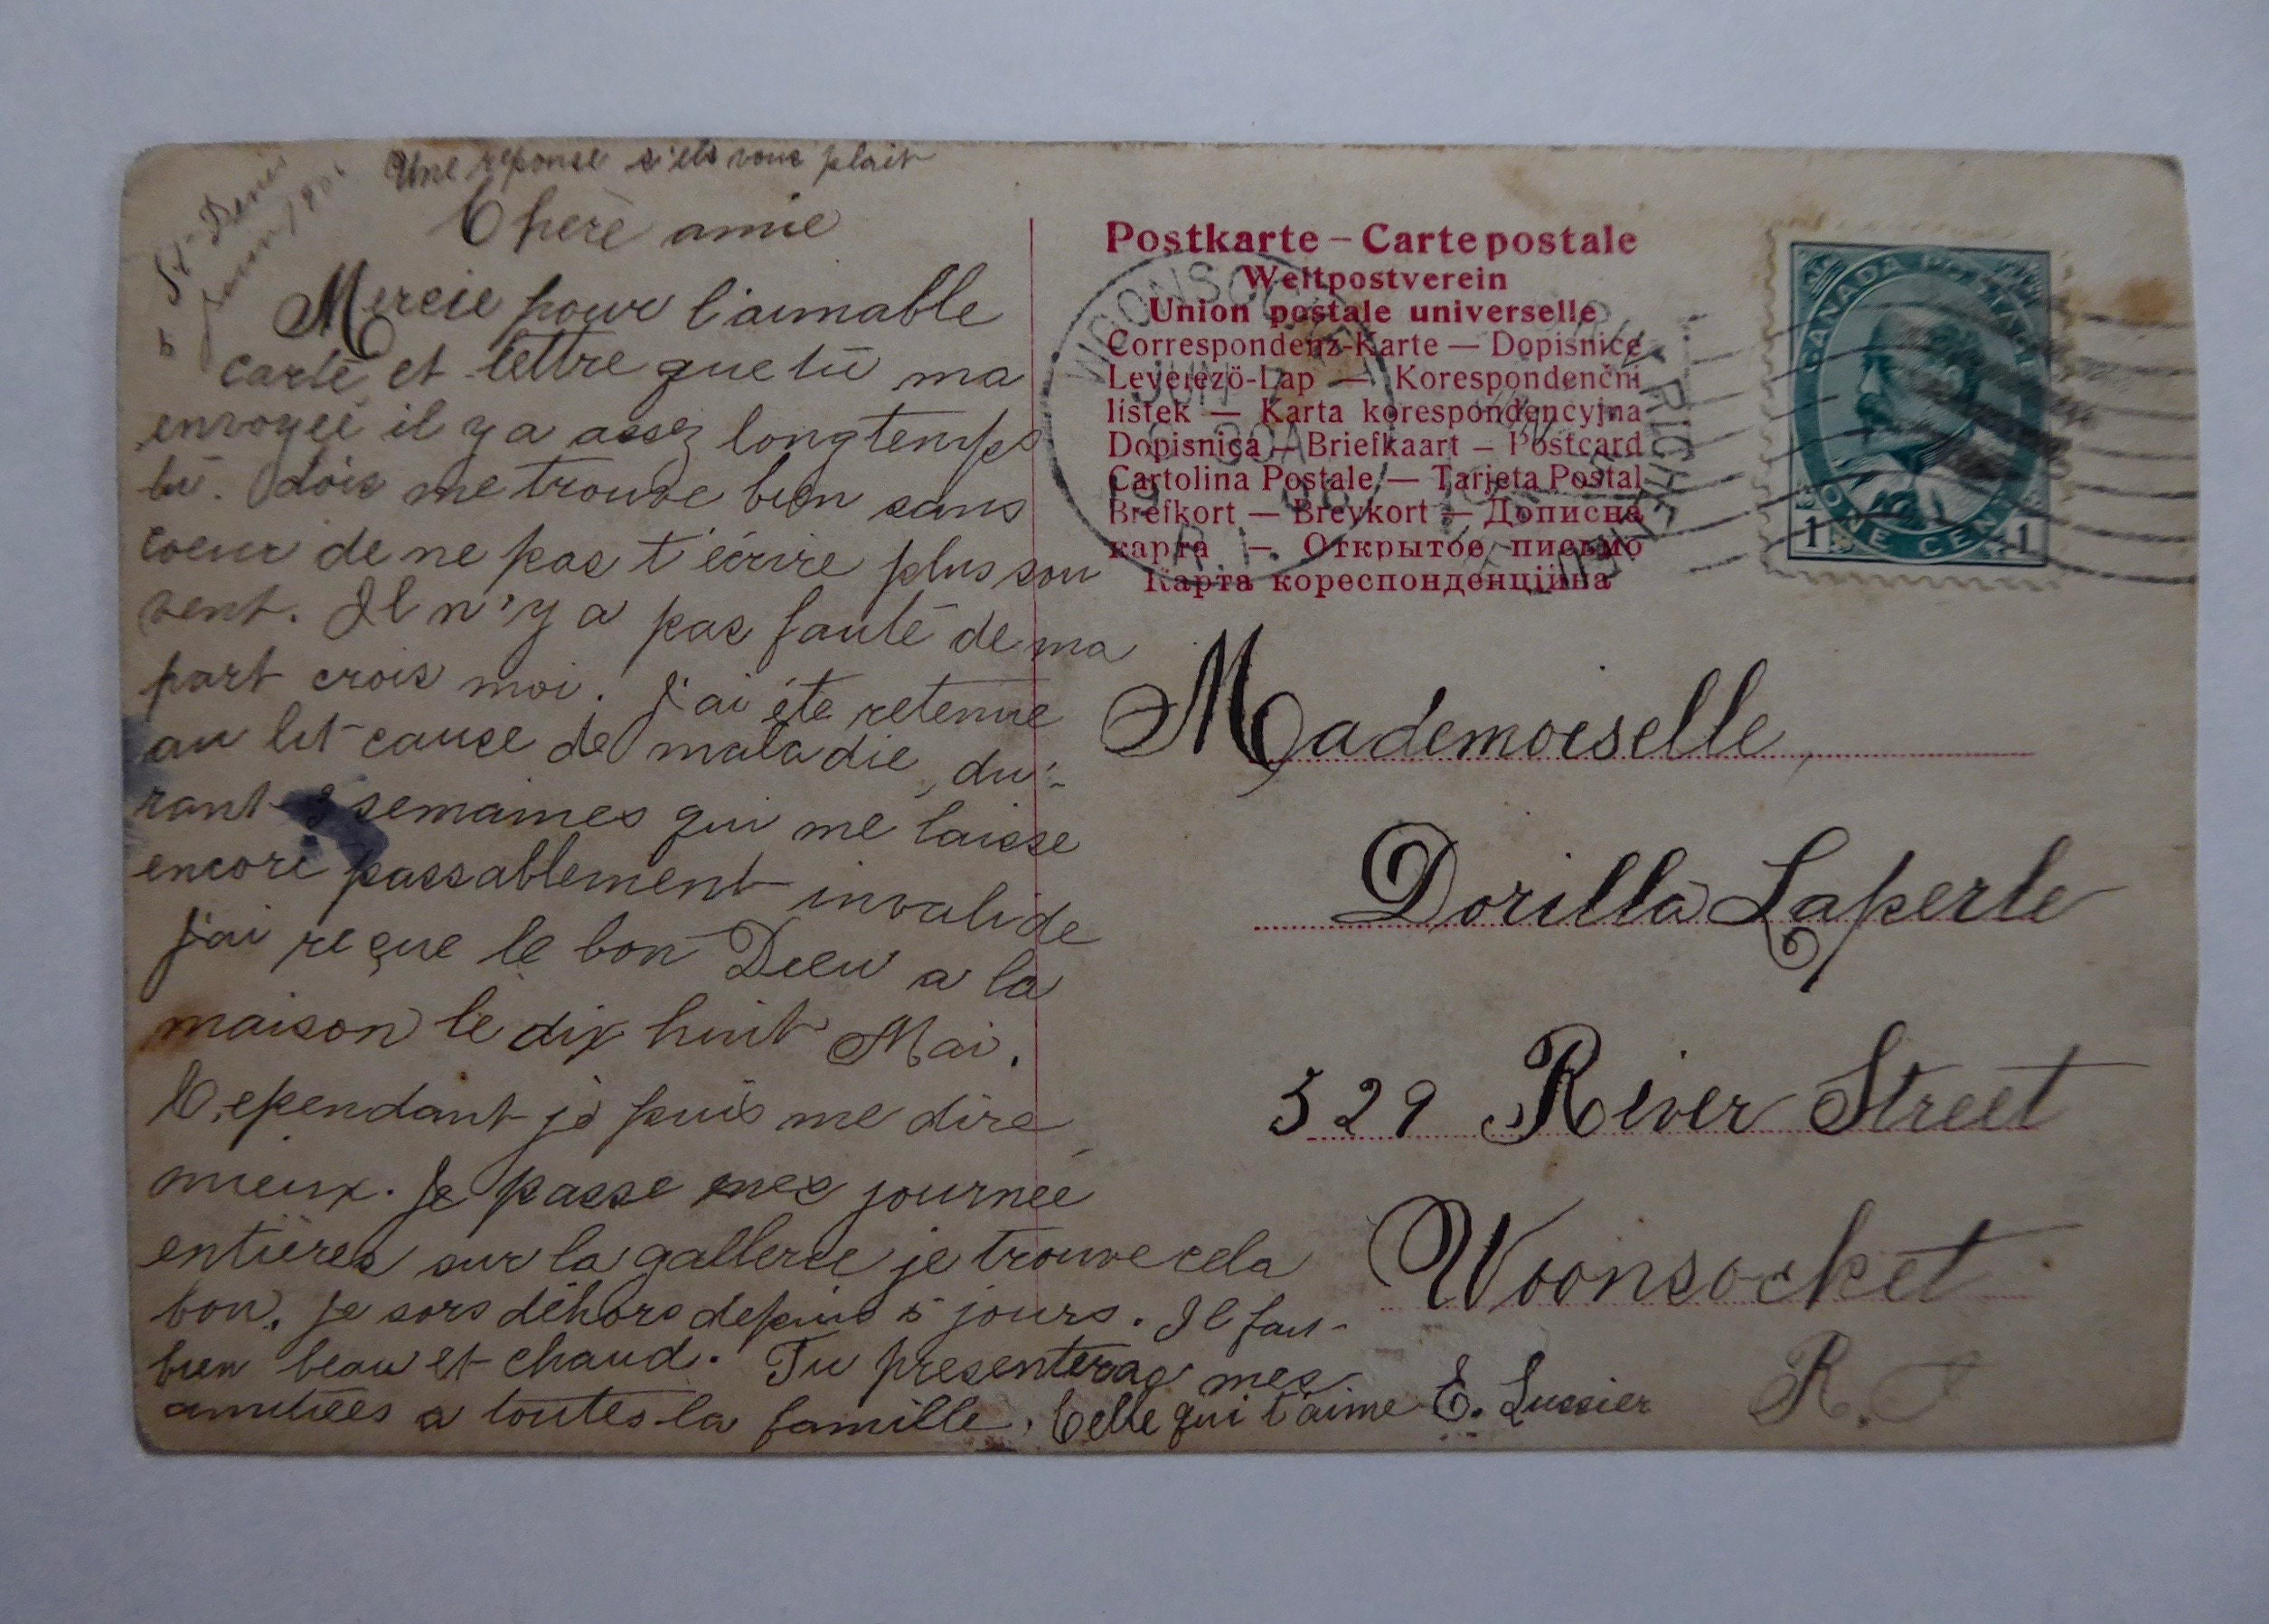 Une reponse s'els vous plait
St-Denis
6 Juin 190
Chère amie
Mercie pour l'aimable
carte et lettre que tu ma
envoyée il y a assez longtemps
tu dois me trouve bien sans
coeur de ne pas t'écrire plus sou
vent. Il n'y a pas faute de ma
part crois moi. J'ai été retenue
au lit cause de maladie, du-
rant 3 semaines qui me laisse
encore passablement invalide
J'ai reçue le bon Dieu a la
maison le dix huit Mai.
Cependant je puis me dire
mieux. Je passe mes journée
entières sur la gallerie je trouve cela
bon. Je sors déhors depuis 5 jours. Il fait
bien beau et chaud. Tu presenteras mes
amitiées a toutes la famille. Celle qui t'aime E. Lussier
Postkarte – Carte postale
Weltpostverein
Union postale universelle
Correspondenz-Karte — Dopisnice
Levelező-Lap — Korespondenční
lístek — Karta korespondencyjna
Dopisnica — Briefkaart — Postcard
Cartolina Postale — Tarjeta Postal
Brefkort — Brevkort — Дописна
карта — Открытое письмо
Карта кореспонденційна
WOONSOCKET
JUN
30A
R.I.
CANADA POSTAGE
1 ONE CENT 1
Mademoiselle,
Dorilla Laperle
329 River Street
Woonsocket
R. I